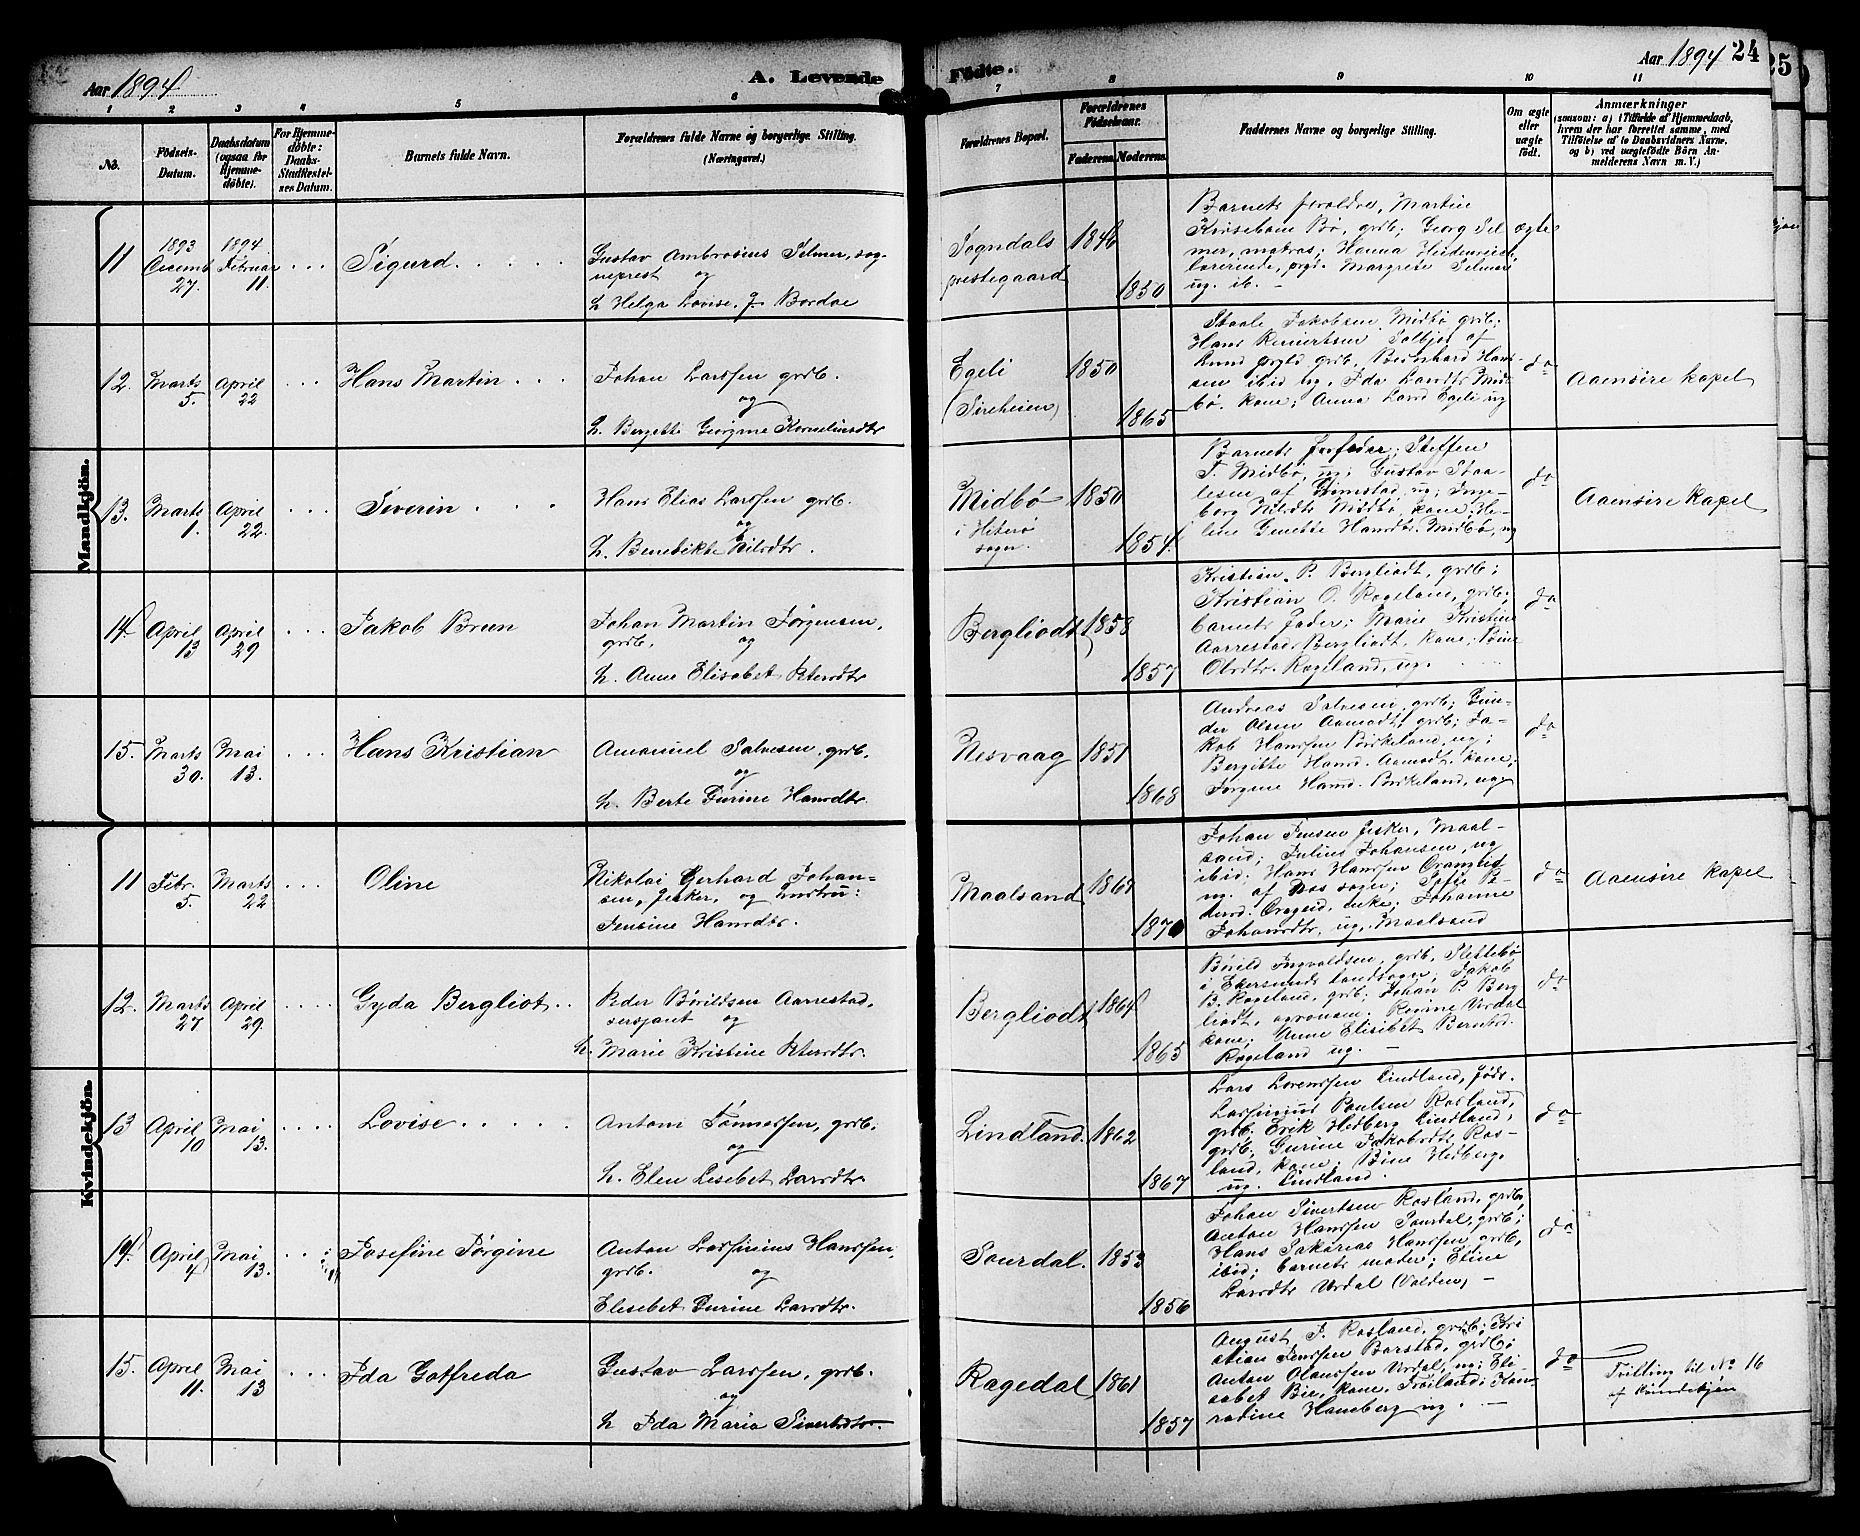 Aar 1894
A. Levende
Fødte.
Aar 1894
24
25
1 2 3 4 5 6
7 8 9 10 11
No.
Födsels-
Datum.
Daabsdatum
(ogsaa for
Hjemme-
døbte).
For Hjemme-
døbte:
Daabs-
Stadfæstel-
ses Datum.
Barnets fulde Navn.
Forældrenes fulde Navne og borgerlige Stilling.
(Næringsvei.)
Forældrenes Bopæl.
Forældrenes
Fødselsaar.
Faderens.
Moderens.
Faddernes Navne og borgerlige Stilling.
Om ægte
eller
uægte
født.
Anmærkninger
(saasom: a) i Tilfælde af Hjemmedaab,
hvem der har forrettet samme, med
Tilføielse af to Daabsvidners Navne,
og b) ved uægtefødte Børn An-
melderens Navn m. V.)
Mandkjön.
11
1893
Decemb
27.
1894
Februar
11.
Sigurd.
Gustav Ambrosius Selmer, sog-
neprest
og
h. Helga Lovise, f. Bordoe
Sogndals
prestegaard
1846
1850
Barnets forældre, Martine
bø, grdb; Georg Sel
mer, matros; Hanna Heidenreich
lærerinde, Margrete Selmer
ug. ib.
ægte
12.
Marts
5.
April
22
Hans Martin
Johan Larssen grdb.
og
h. Bergitte Georgine Kornelius­dtr
Egeli
(Sireheien)
1850
1865
Staale Jakobsen Midbø grdb;
Hans Reinertsen Solbjør af
Lund grdb, Bernhard Hans-
sen ibid ug, Ida Larsdtr Mid-
bø. kone; Anna Larsd Egeli ug
do
Aaensire kapel
13.
Marts
1.
April
22.
Severin
Hans Elias Larssen grdb.
og
h. Benedikte Nilsdtr.
Midbø
i Hiterø
sogn.
1850
1854.
Barnets farfader; Steffen
T. Midbø, ug; Gustav Staa-
lesen af Grimstad, ug; Inge-
borg Nilsdtr Midbø, kone, He-
line Genette Hansdtr. Midbø, ug
do
Aaensire kapel
14
April
13
April
29
Jakob Breen
Johan Martin Jørgensen,
grdb.
og
h. Anne Elisabet Petersdtr
Bergliodt
1858
1857
Kristian P. Bergliodt, grdb;
Kristian O. Rageland, grdb;
barnets fader; Marie Kristine
Aarrestad, Bergliodt, kone;
Olsdtr. Rageland, ug.
do
15.
Marts
30.
Mai
13.
Hans Kristian
Amanuel Salvesen, grdb.
og
h. Berte Gurine Hansdtr.
Nesvaag
1851
1868
Andreas Salvesen, grdb; Gun-
der Olsen Aamodt, grdb; Ja-
kob Hanssen Birkeland, ug;
Bergitte Hansd. Aamodt. kone,
Jorgine Hansd. Birkeland, ug
do
Kvindekjön.
11
Febr.
5.
Marts
22
Oline
Nikolai Gerhard Johan-
sen, fisker, og hustru:
Jensine Hansdtr.
Maalsand
1867
1870
Johan Jensen fisker, Maal-
sand; Julius Johansen, ug
ibid; Hans Hanssen
ug. af sogn; Sofie Pe-
dersd. enke; Johanne
Johansdtr, ug. Maalsand
do
Aaensire kapel
12.
Marts
27
April
29.
Gyda Bergliot
Peder Børildsen Aarrestad,
sersjant og
h. Marie Kristine Petersdtr.
Bergliodt
1864
1865
Børild Ingvaldsen, grdb, Slettebø
i Ekersunds landsogn; Jakob
B. Rageland, grdb; Johan P. Berg
liodt, agronom; Urdal
kone; Anne Elisibet Berntsd.
Rageland ug.
do
13
April
10
Mai
13.
Lovise
Antom Tønnessen, grdb.
og
h. Elen Lesebet Larsdtr.
Lindland.
1862
1867
Lars Lorentssen Lindland, føder.
Lassinius Paulsen Rosland,
grdb. Erik Hedberg Lindland,
grdb. Gurine Jakobsdtr Ros-
land, kone; Bine Hedberg.
ug. Lindland.
do
14.
April
4
Mai
13.
Josefine Jørgine
Anton Lassinius Hanssen,
grdb.
og
Elesebet Gurine Larsdtr.
Sourdal.
1853
1856
Johan Sivertsen Rosland, grdb,
Anton Hanssen Sourdal, grdb;
Hans Sakarias Hanssen grdb,
ibid; barnets moder; Eline
Larsdtr Urdal (Valden)
do
15.
April
11.
Mai
13
Ida Gotfreda
Gustav Larssen, grdb.
og
h Ida Maria Sivertsdtr
Ragedal
1861
1857
August J. Rosland, grdb; Kri
stian Jenssen Barstad, grdb;
Anton Olaussen Urdal, ug; Eli-
sabet Bie, kone, Frøiland; Kon-
radine Haneberg ug.
do
Tvilling til No 16
af kvindekjøn